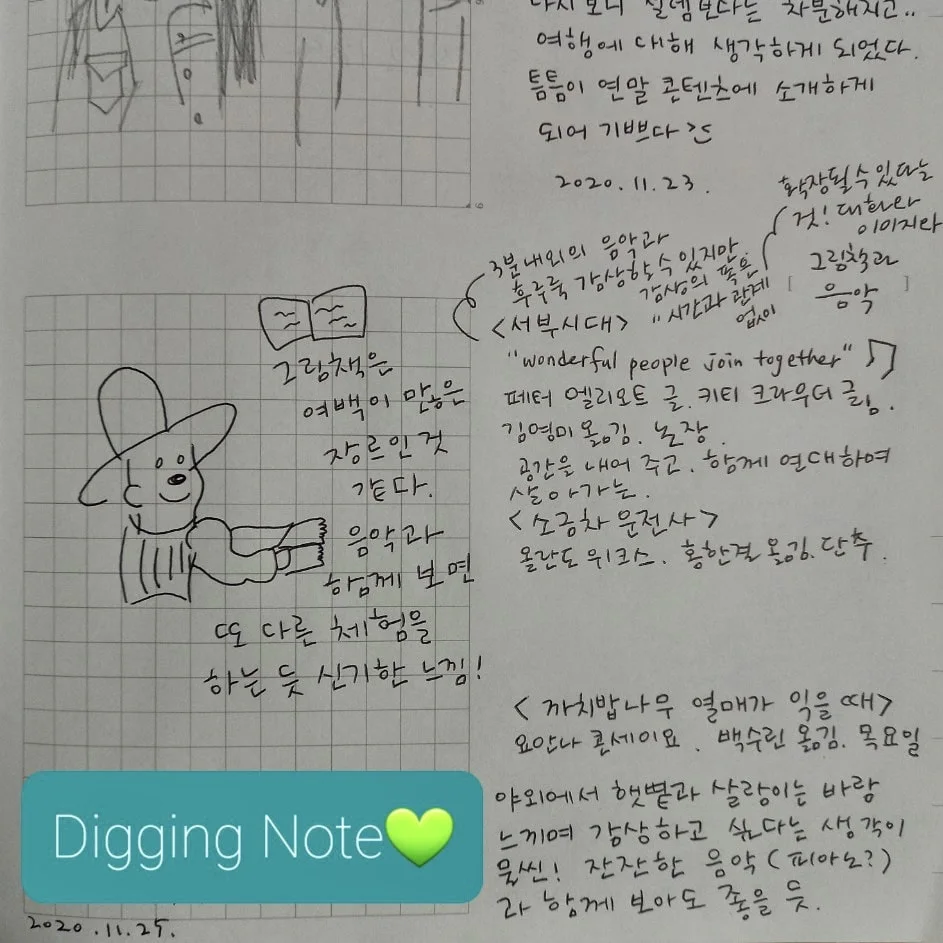 다시 보니 설렘보다는 차분해지고..
여행에 대해 생각하게 되었다.
틈틈이 연말 콘텐츠에 소개하게
되어 기쁘다
2020.11.23.
3분 내외의 음악과
후루룩 감상할 수 있지만
감상의 폭은
"시간과 관계
없이
확장될 수 있다는
것! 대화라
이미지라
[그림책과
음악]
그림책은
여백이 많은
장르인 것
같다.
음악과
함께 보면
또 다른 체험을
하는 듯 신기한 느낌!
<서부시대>
"wonderful people join together" ♫
페터 엘리오트 글. 키티 크라우더 그림.
김영미 옮김. 논장.
공간을 내어 주고. 함께 연대하여
살아가는.
<소금차 운전사>
올란도 위크스. 홍한결 옮김. 단추.
<까치밥나무 열매가 익을 때>
요안나 콘세이요. 백수린 옮김. 목요일
야외에서 햇볕과 살랑이는 바람
느끼며 감상하고 싶다는 생각이
물씬! 잔잔한 음악(피아노?)
과 함께 보아도 좋을 듯.
Digging Note💚
2020.11.25.